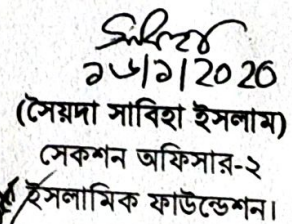 ১৬/১/2020
(সৈয়দা সাবিহা ইসলাম)
সেকশন অফিসার-২
ইসলামিক ফাউন্ডেশন।